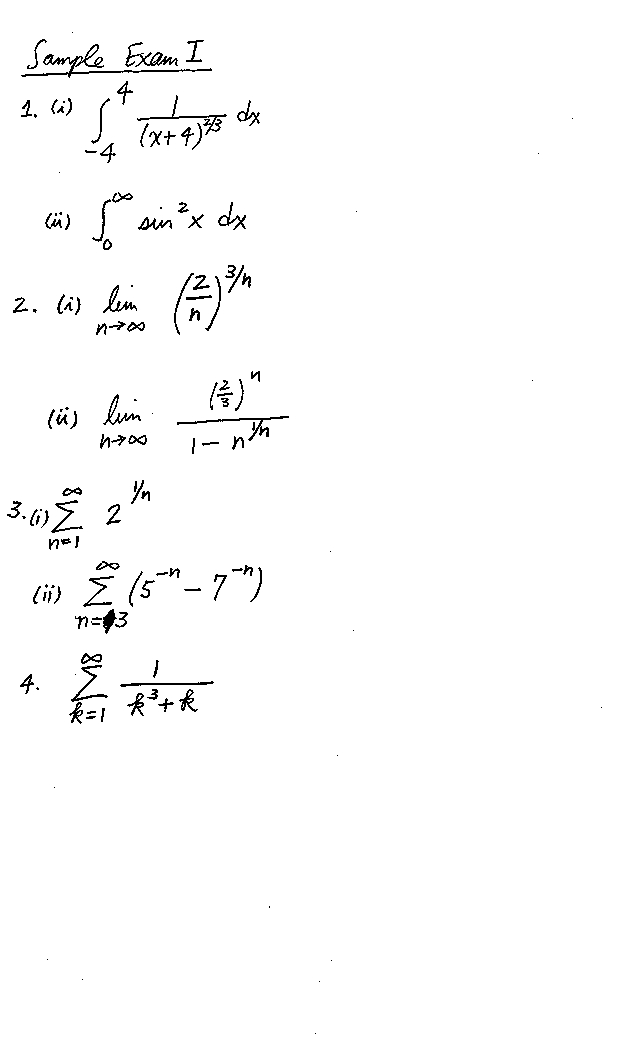 Sample Exam I
1. (i) ∫_{-4}^{4} 1/(x+4)^{2/3} dx
(ii) ∫_0^∞ sin²x dx
2. (i) lim_{n→∞} (2/n)^{3/n}
(ii) lim_{n→∞} (2/3)^n / (1 - n^{1/n})
3. (i) ∑_{n=1}^∞ 2^{1/n}
(ii) ∑_{n=3}^∞ (5^{-n} - 7^{-n})
4. ∑_{k=1}^∞ 1/(k³+k)